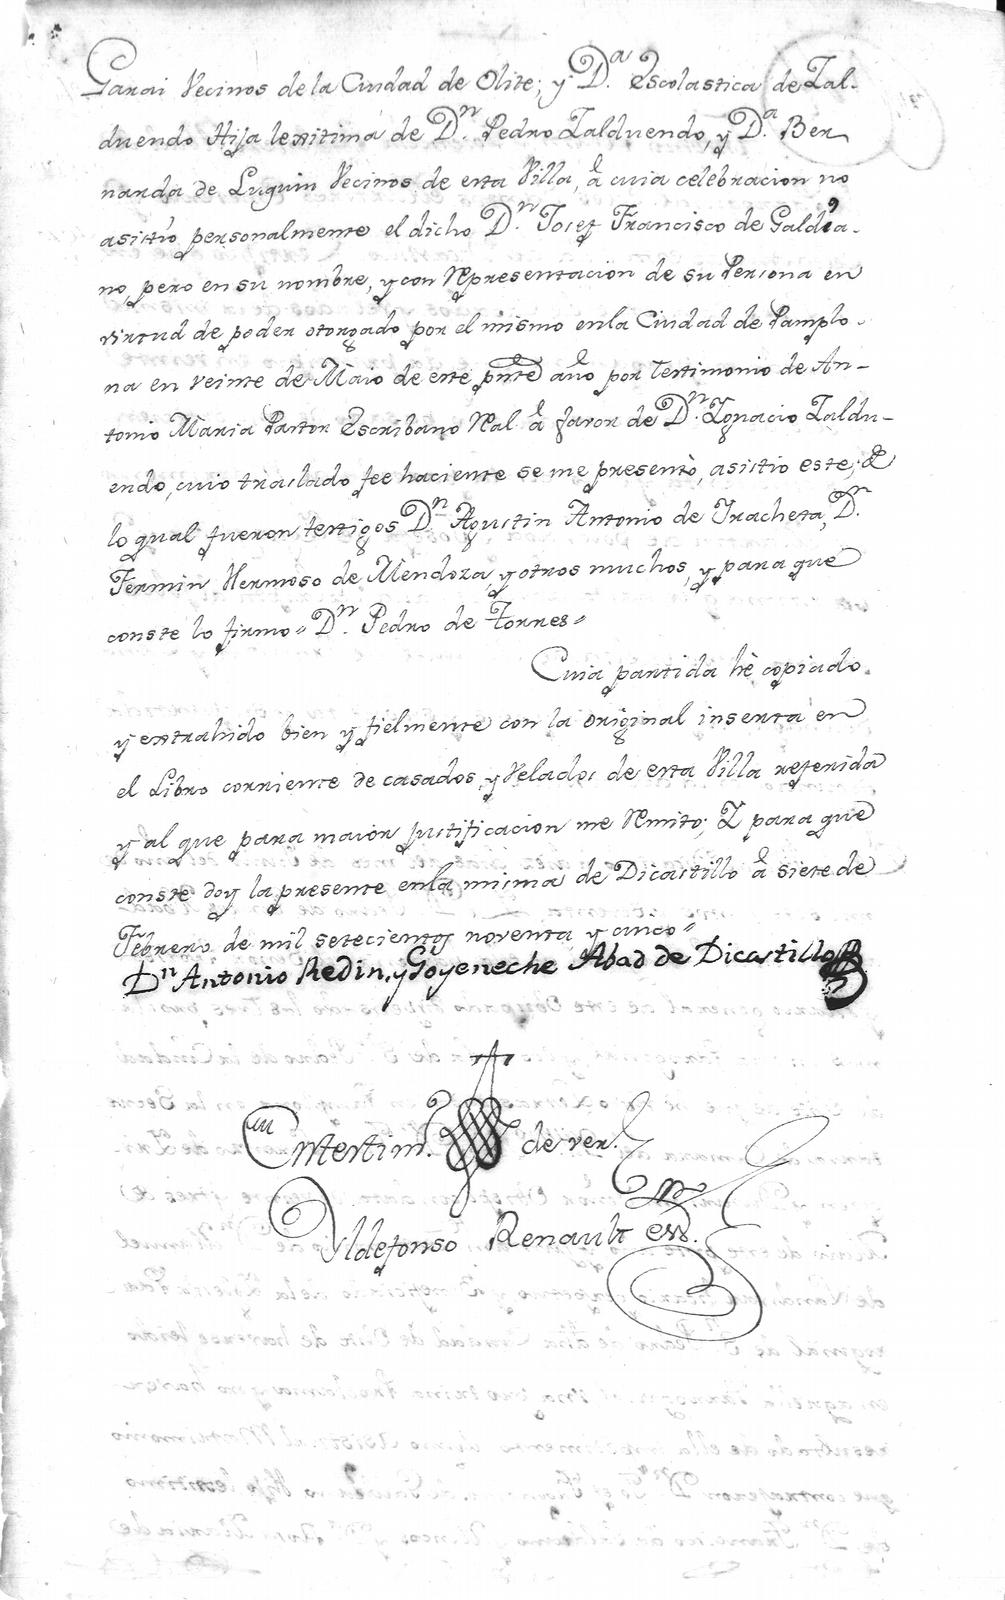 Garai Vecinos de la Ciudad de Olite; y D.ª Escolastica de Zal-
duendo Hija lexitima de D.n Pedro Zalduendo, y D.ª Ber
narda de Luquin Vecinos de esta Villa, â cuia celebracion no
asistio personalmente el dicho D.n Josef Francisco de Galdia-
no, pero en su nombre, y con Representacion de su Persona en
virtud de poder otorgado por el mismo en la Ciudad de Pamplo-
na en veinte de Maio de este pnte año por testimonio de An-
tonio Maria Pastor Escribano Ral. â favor de D.n Ygnacio Zaldu-
endo, cuio traslado fee haciente se me presentò, asistio este; â
lo qual fueron testigos D.n Agustin Antonio de Yracheta, D.n
Fermin Hermoso de Mendoza, y otros muchos, y para que
conste lo firmo = D.n Pedro de Torres =
Cuia partida hè copiado
y extrahido bien y fielmente con la original inserta en
el Libro corriente de casados, y Velados de esta Villa referida
y al que para maior justificacion me Remito; Y para que
conste doy la presente en la misma de Dicastillo â siete de
Febrero de mil setecientos noventa y cinco =
D.n Antonio Redin, y Goyeneche Abad de Dicastillo
En testim.o de ver.
Yldefonso Renault ess.